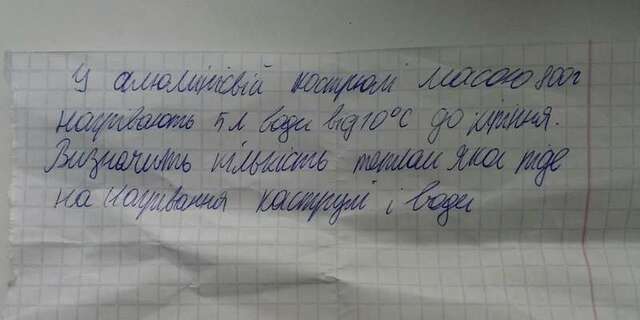 У алюмінієвій каструлі масою 800г
нагрівають 5л води від 10°С до кипіння.
Визначить кількість теплоти яка піде
на нагрівання каструлі і води